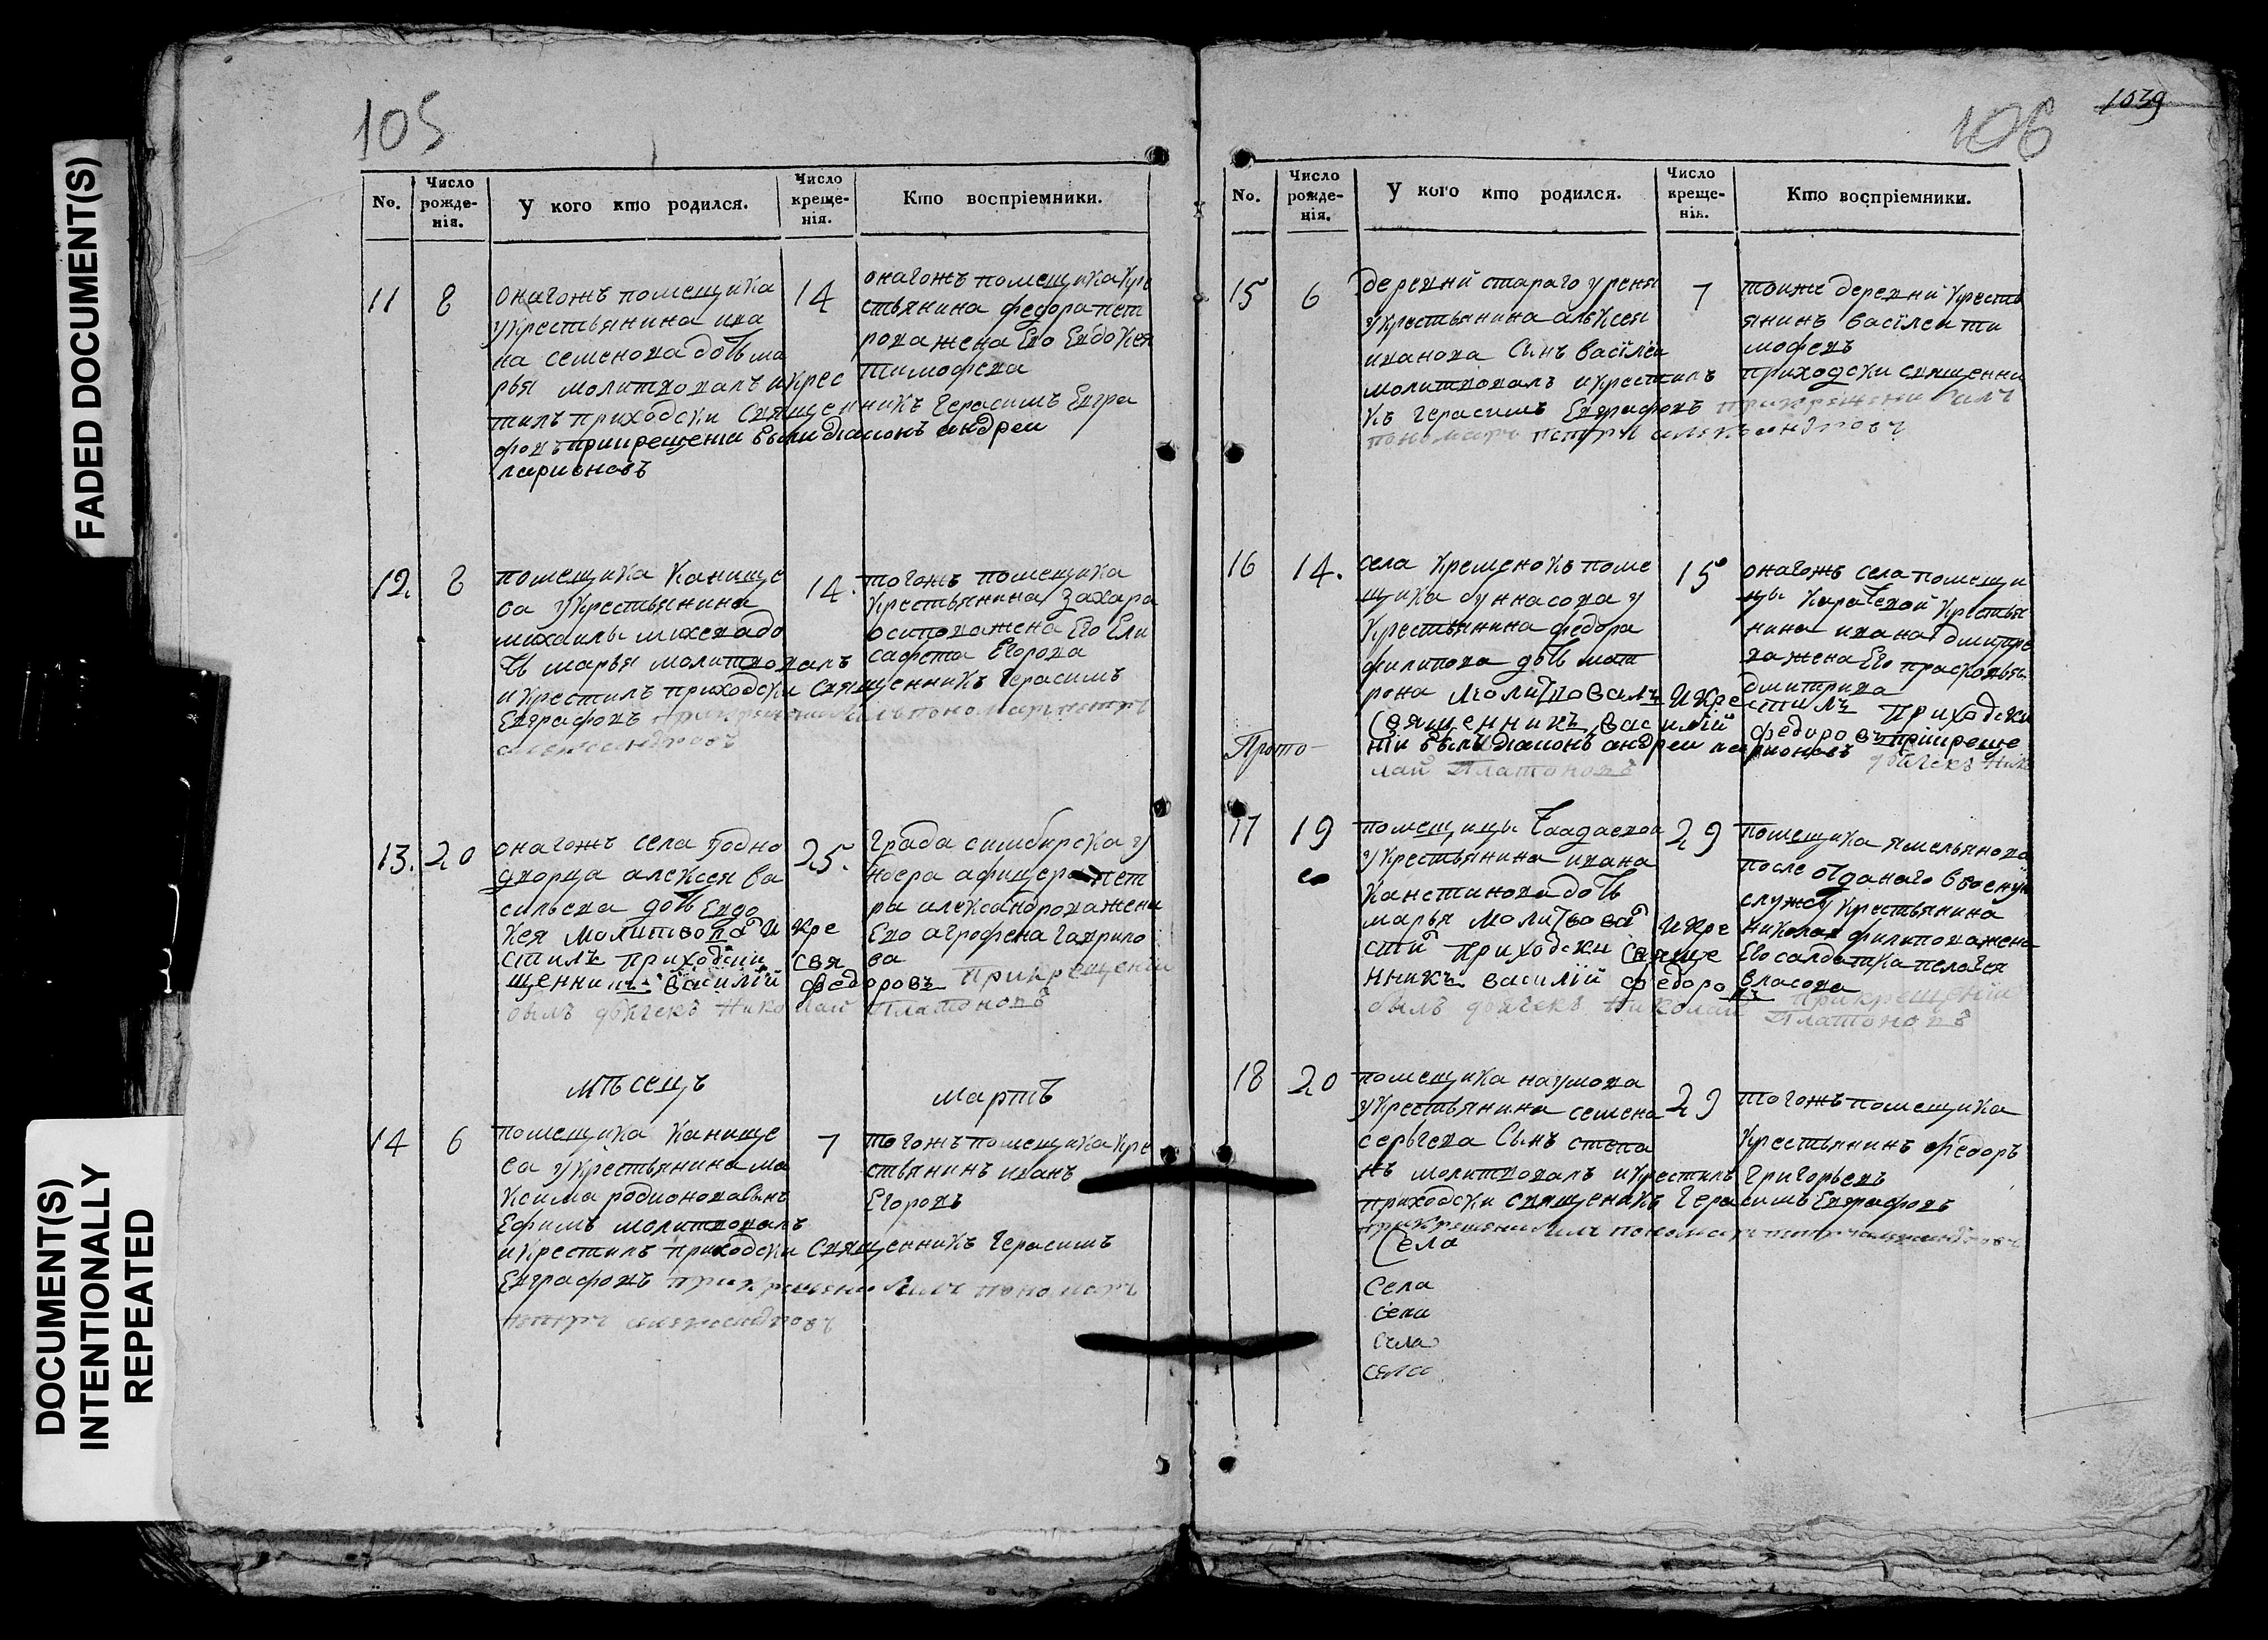 FADED DOCUMENT(S)
DOCUMENT(S)
INTENTIONALLY
REPEATED
105
No.
Число
рожде-
нія.
У кого кто родился.
Число
креще-
нія.
Кто воспріемники.
11
8
онагожъ помещика
укрестьянина ива
на семенова дочь ма
рья молитвовалъ икрес
тилъ приходски священникъ герасимъ Евгра
фовъ прикрещеніи былъ діаконъ андреи
ларионовъ
14
онагожъ помещика кре
стьянина федора пет
рова жена Ево Евдокея
тимофева
12.
8
помещика Канище
ва укрестьянина
михаилы михева до
чь марья молитвовалъ
и крестилъ приходски священникъ герасимъ
Евграфовъ прикрещении былъ пономарь петръ
александровъ
14.
тогожъ помещика
крестьянина Захара
осипова жена Его Ели
савета Егорова
13.
20
онагожъ села уодно
дворца алексея ва
сильева дочь Евдо
кея молитвовал и кре
стилъ приходскии свя
щенникъ василій федоровъ прикрещеніи
былъ дьячекъ Николай Платоновъ
25.
града симбирска у
афицера пет
ра александрова жена
Ево агрофена гаврило
ва
мѣсецъ
мартъ
14
6
помещика Канище
ва укрестьянина ма
ксима родионова сынъ
Ефимъ молитвовалъ
и крестилъ приходски священникъ герасимъ
Евграфовъ прикрещении былъ пономарь
петръ александровъ
7
тогожъ помещика кре
стьянинъ иванъ
Егоровъ
106
1039
No.
Число
рожде-
нія.
У кого кто родился.
Число
креще-
нія.
Кто воспріемники.
15
6
деревни стараго уреня
укрестьянина алексея
иванова сынъ василеи
молитвовалъ икрестилъ приходски священни
къ герасимъ Евграфовъ прикрещении былъ
пономарь петръ александровъ
7
тоиже деревни кресть
янинъ василеи ти
мофевъ
16
14.
села крешенокъ поме
щика у
крестьянина федора
филипова дочь мат
рона молитвовалъ и крестилъ приходски
священникъ василій федоровъ прикреще
ніи былъ діаконъ андреи ларионовъ дьячекъ Нико
лай Платоновъ
Прото-
15
онагожъ села помещи
цы крестья
нина ивана дмитре
ва жена Его прасковья
дмитрива
17
19
помещицы Чаадаевои
укрестьянина ивана
констинова дочь
марья молитвовал и кре
стил приходски священ
нникъ василій федоровъ прикрещеніи
былъ дьячекъ Николай Платоновъ
29
помещика ямельянова
после отданаго ввоеную
службу крестьянина
николая филипова жена
Ево салдатка пелагея
власова
18
20
помещика наумова
укрестьянина семена
серьгева сынъ степа
нъ молитвовалъ и крестилъ
приходски священикъ герасимъ Евграфовъ
прикрещении былъ пономарь петръ александровъ
29
тогожъ помещика
крестьянинъ федоръ
григорьевъ
Села
Села
села
села
села